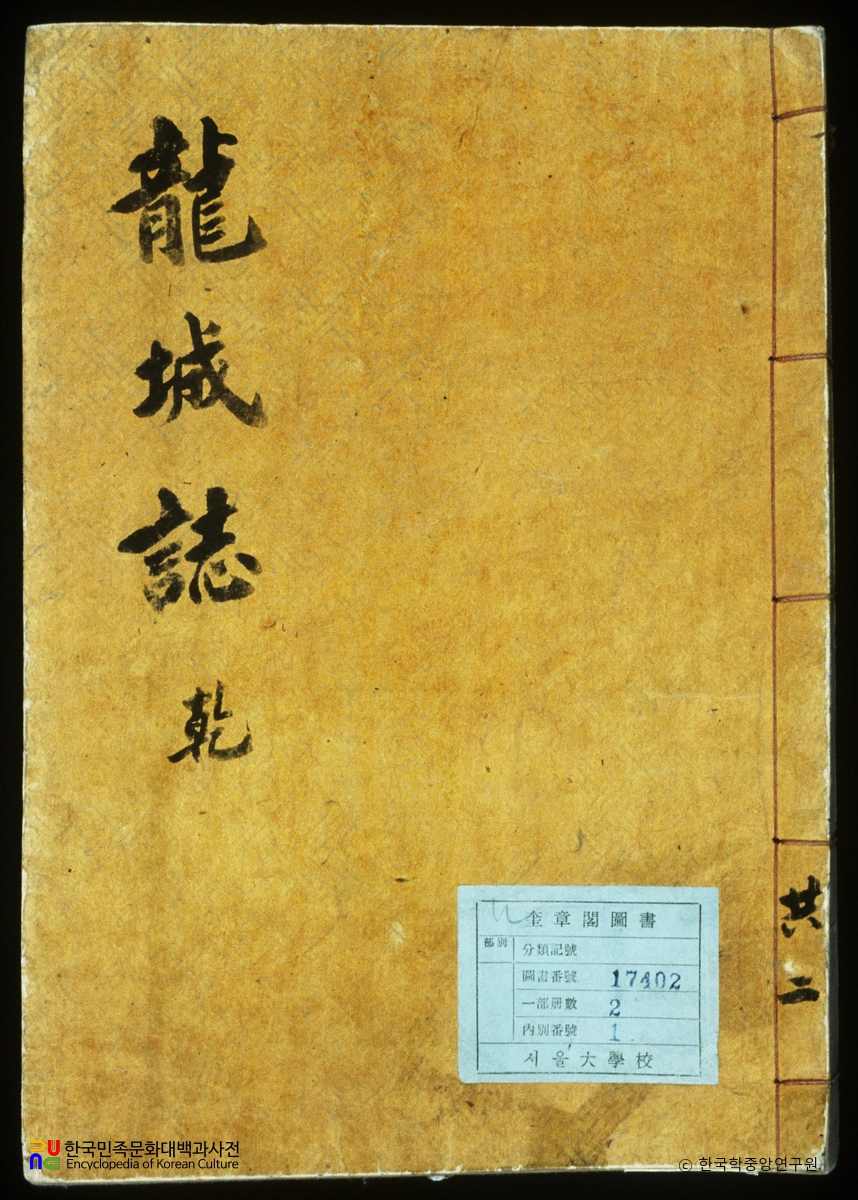 龍城誌 乾
共二
奎章閣圖書
部別
分類記號
圖書番號 17402
一部册數 2
內別番號 1
서울大學校
한국민족문화대백과사전
Encyclopedia of Korean Culture
© 한국학중앙연구원